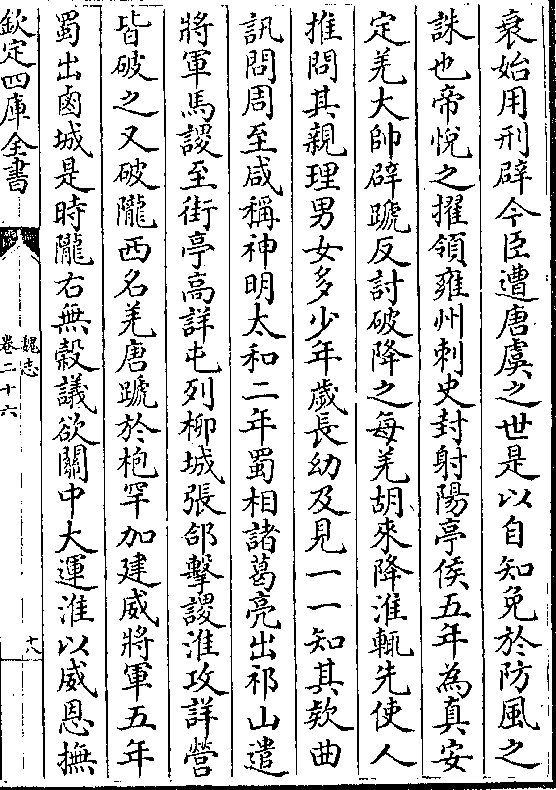 衰始用刑辟今臣遭唐虞之世是以自知免於防風之
誅也帝悅之擢領雍州刺史封射陽亭侯五年為真安
定羌大帥辟蹏反討破降之每羌胡來降淮輒先使人
推問其親理男女多少年歲長幼及見一一知其款曲
訊問周至咸稱神明太和二年蜀相諸葛亮出祁山遣
將軍馬謖至街亭高詳屯列柳城張郃擊謖淮攻詳營
皆破之又破隴西名羌唐蹏於枹罕加建威將軍五年
蜀出鹵城是時隴右無穀議欲關中大運淮以威恩撫
欽定四庫全書
魏志
卷二十六
十八